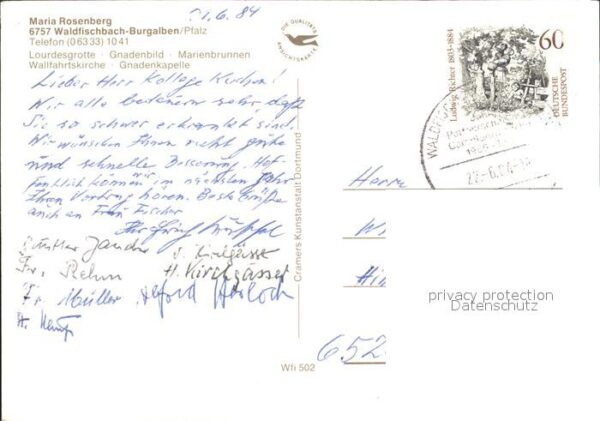 Maria Rosenberg
6757 Waldfischbach-Burgalben/Pfalz
Telefon (06333) 1041
Lourdesgrotte · Gnadenbild · Marienbrunnen
Wallfahrtskirche · Gnadenkapelle
21.6.84
DIE QUALITÄTS
ANSICHTSKARTE
Lieber Herr Kollege Kirchen!
Wir alle bedauern sehr, daß
Sie so schwer erkrankt sind.
Wir wünschen Ihnen recht gute
und schnelle Besserung. Hof-
fentlich können wir im nächsten Jahr
Ihren Vortrag hören. Beste Grüße
auch an Frau Fischer
Ihr
Günther
Fr. Rehm H. Kirchgässer
Fr. Müller Alfred
H.
Cramers Kunstanstalt Dortmund
Wfi 502
Ludwig Richter 1803-1884
60
DEUTSCHE
BUNDESPOST
22-6.84
Herrn
W
Hin
652
privacy protection
Datenschutz